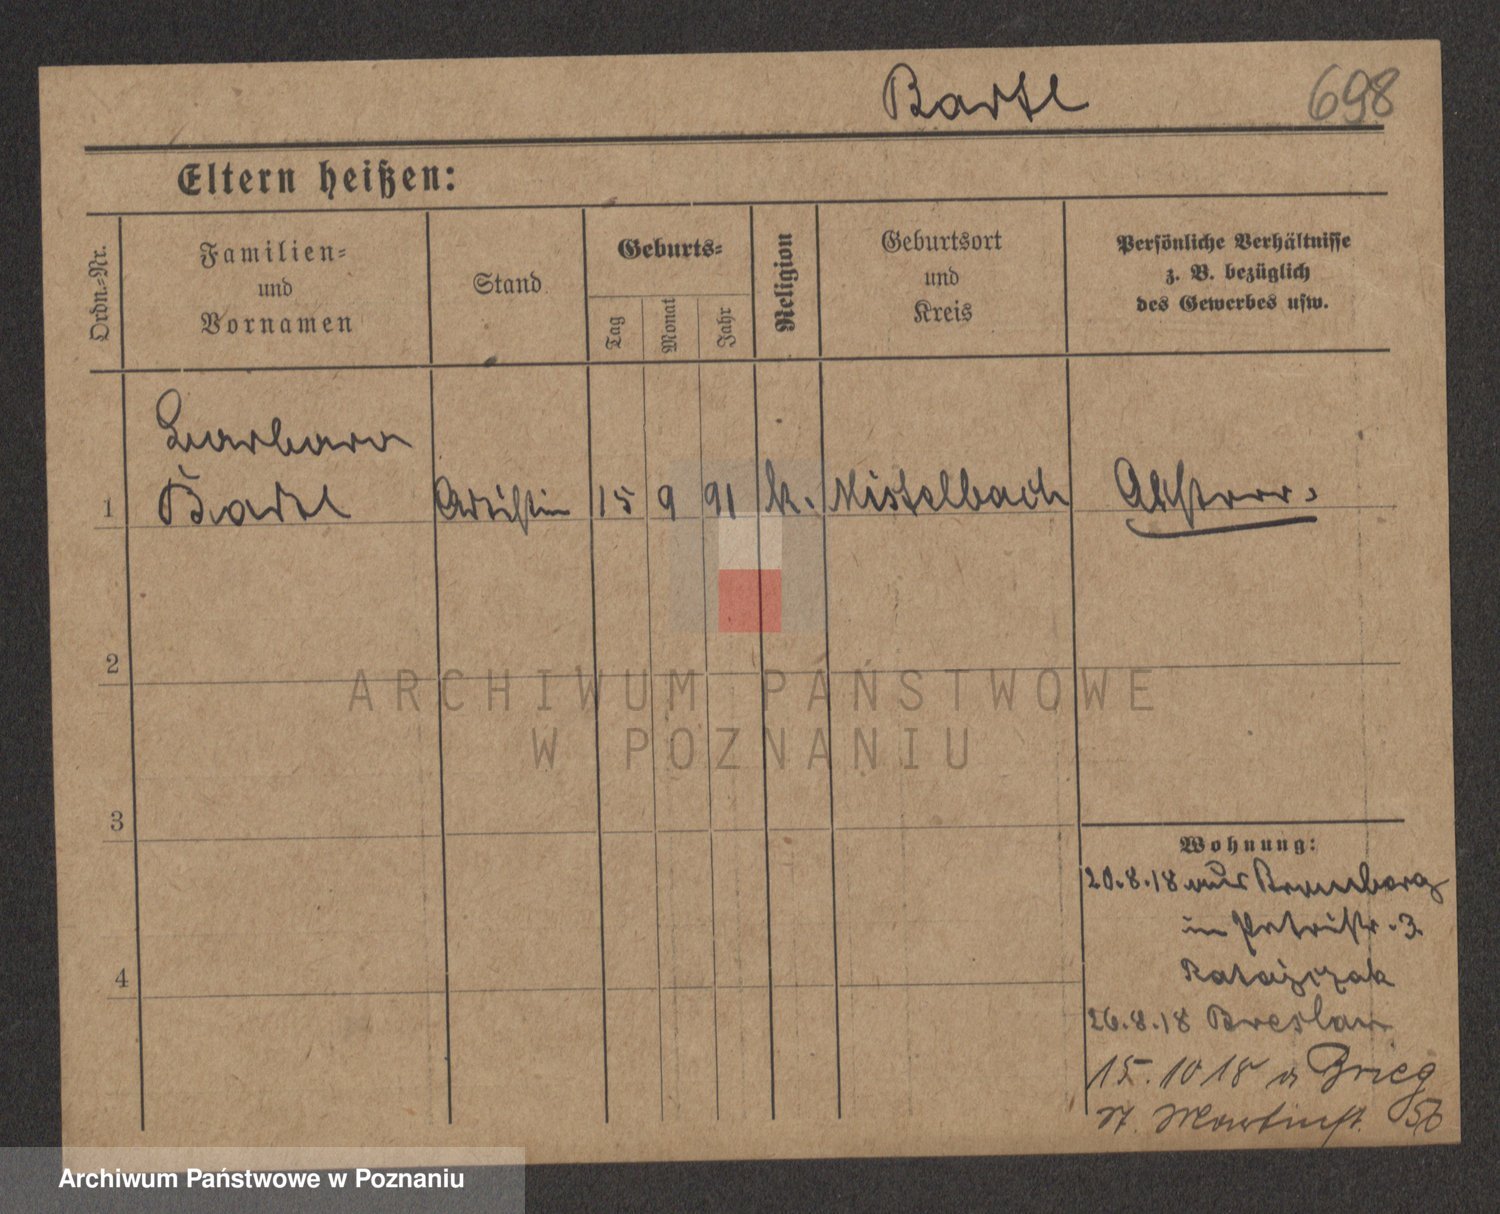 Bartl 698
Eltern heißen:
Ordn.-Nr.
Familien-
und
Vornamen
Stand
Geburts-
Tag
Monat
Jahr
Religion
Geburtsort
und
Kreis
Persönliche Verhältnisse
z. B. bezüglich
des Gewerbes usw.
Barbara
1 Bartl Artistin 15 9 91 k. Mistelbach
2
ARCHIWUM PAŃSTWOWE
W POZNANIU
3
Wohnung:
20.8.18 aus Bromberg
in Petristr. 3
Ratajczak
4
26.8.18 Breslau
15.10 18 a Brieg
St. Martinst. 56
Archiwum Państwowe w Poznaniu